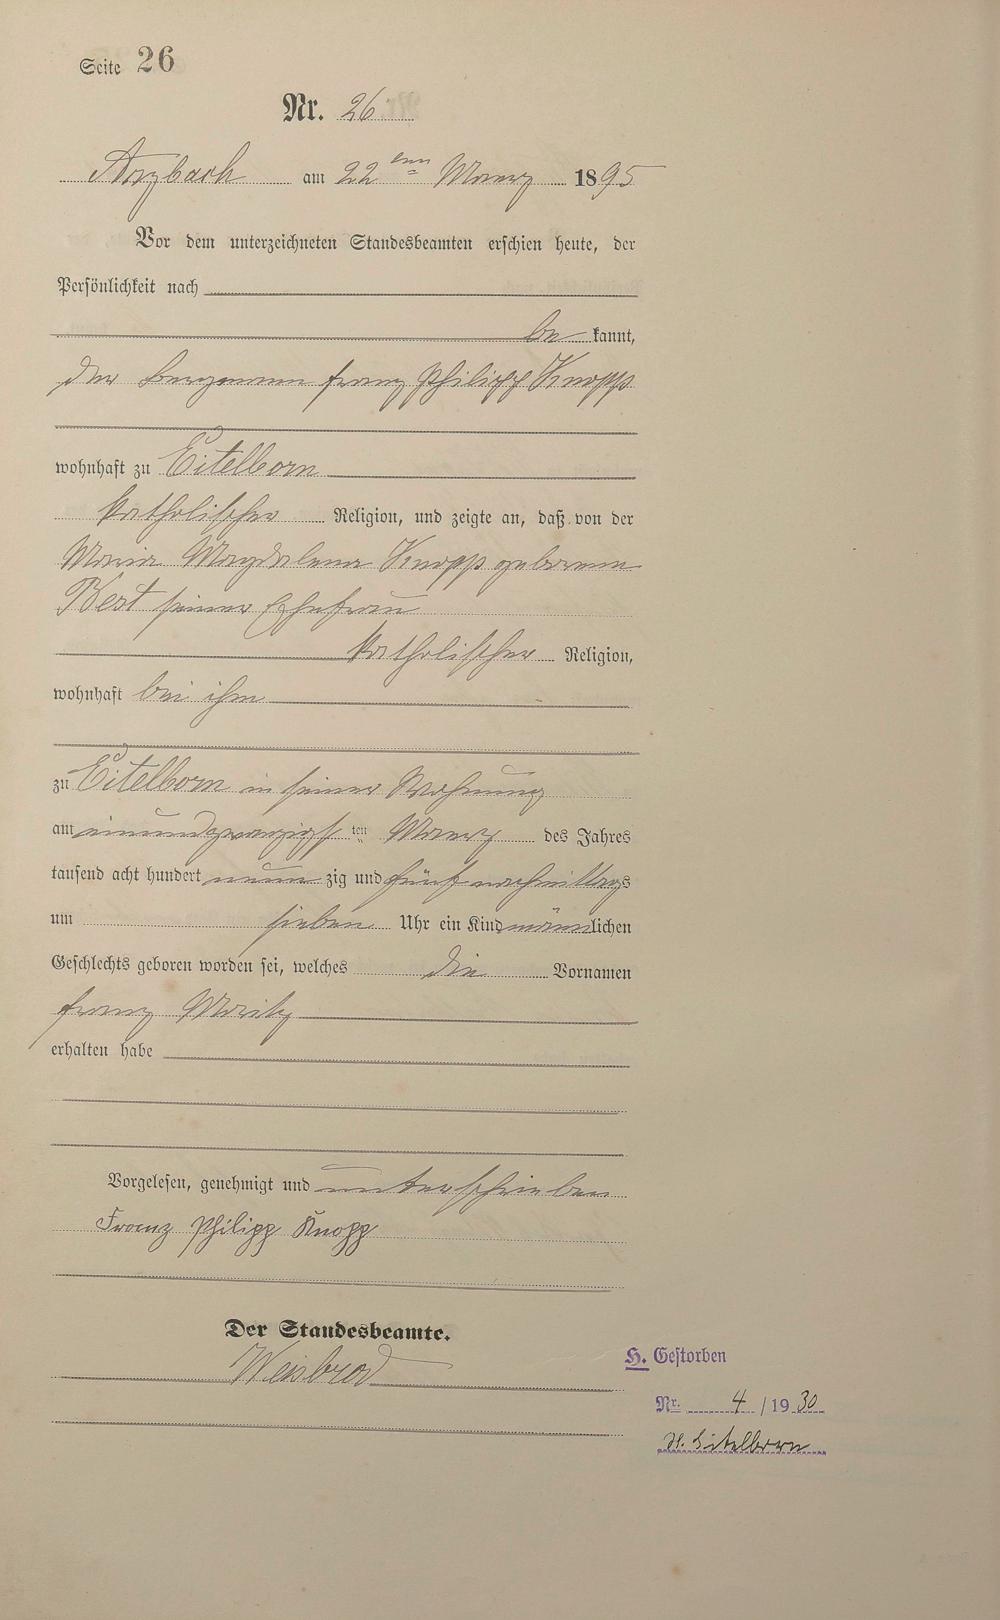 Seite 26
Nr. 26
Arzbach am 22 ten Maerz 1895
Vor dem unterzeichneten Standesbeamten erschien heute, der
Persönlichkeit nach
be kannt,
der Bergmann Franz Philipp Knopp
wohnhaft zu Eitelborn
katholischer Religion, und zeigte an, daß von der
Maria Magdalena Knopp geborenen
Best seiner Ehefrau
katholischer Religion,
wohnhaft bei ihm
zu Eitelborn in seiner Wohnung
am einundzwanzigsten Maerz des Jahres
tausend acht hundert neun zig und fünf nachmittags
um sieben Uhr ein Kind männlichen
Geschlechts geboren worden sei, welches die Vornamen
Franz Moritz
erhalten habe
Vorgelesen, genehmigt und unterschrieben
Franz Philipp Knopp
Der Standesbeamte.
Weisbrod
H. Gestorben
Nr. 4 / 19 30
St. Eitelborn